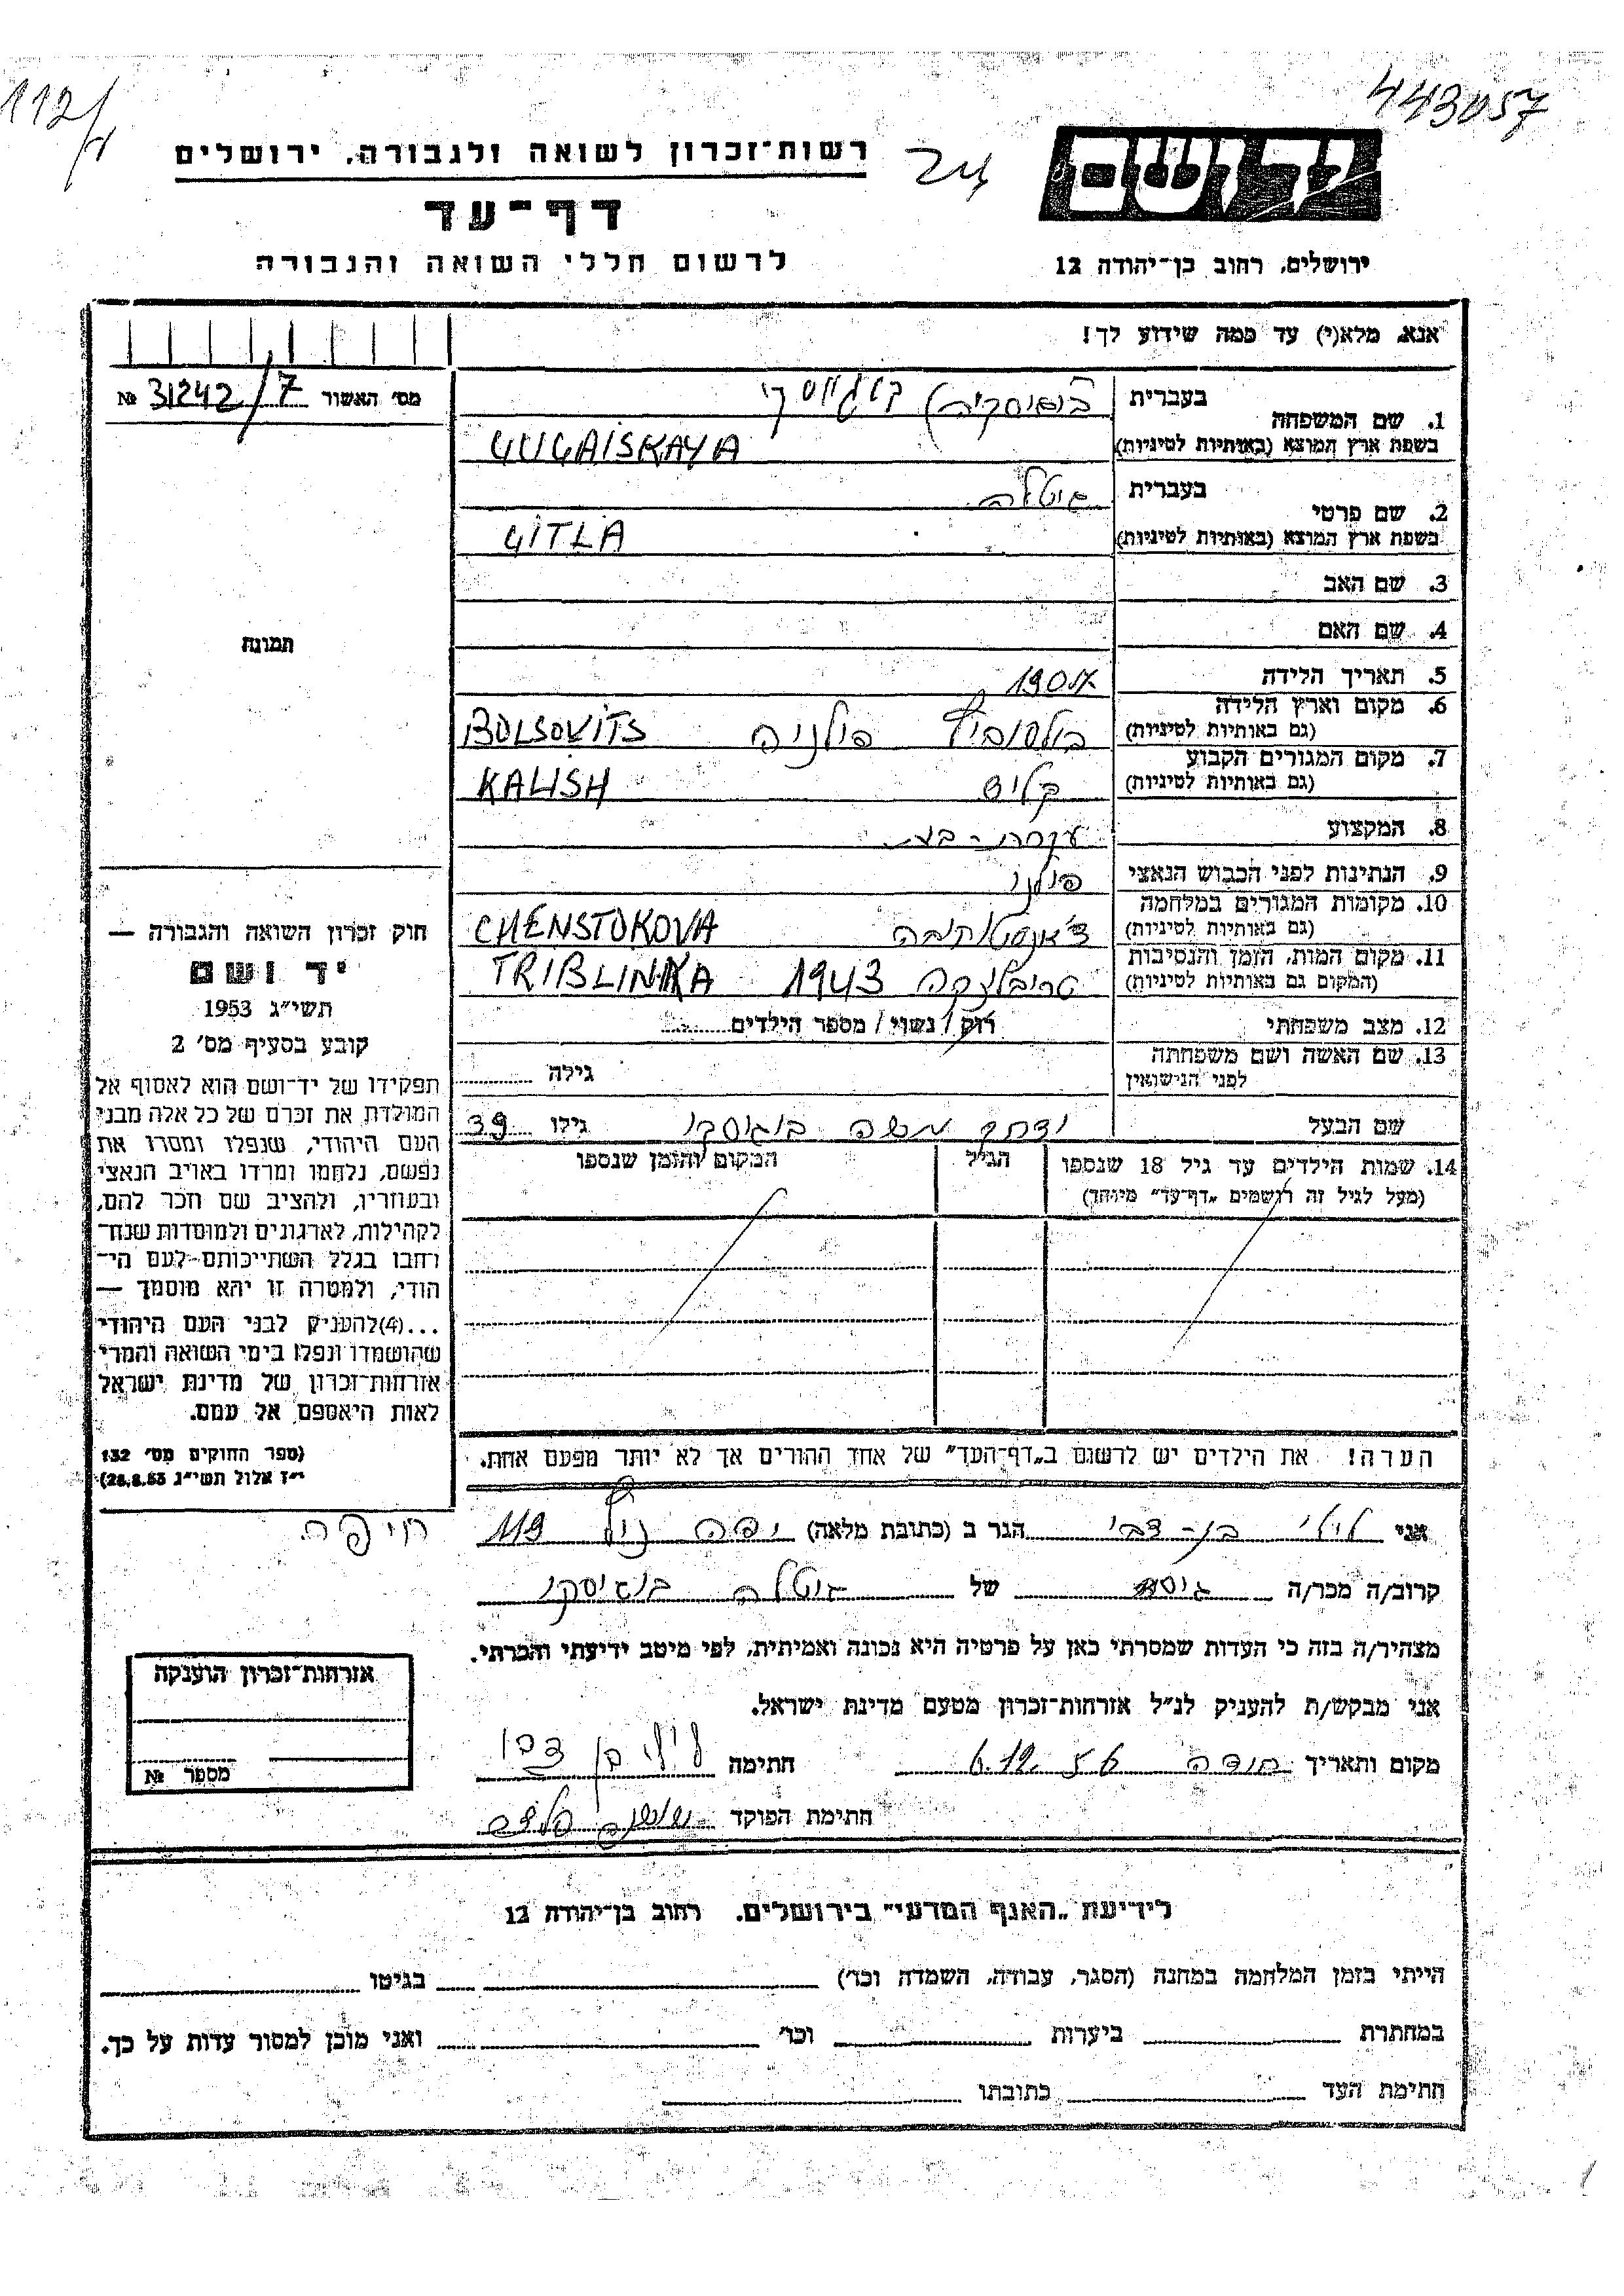 112/
443057
יד ושם
רשות־זכרון לשואה ולגבורה, ירושלים
דף־עד
לרשום חללי השואה והגבורה
ירושלים, רחוב בן־יהודה 12
אנא, מלא(י) עד כמה שידוע לך!
מס׳ האשור 31242/7 №
1. שם המשפחה
בעברית
בשפת ארץ המוצא (באותיות לטיניות) GUGAISKAYA
2. שם פרטי
בעברית גיטלה
בשפת ארץ המוצא (באותיות לטיניות) GITLA
3. שם האב
4. שם האם
תמונה
5. תאריך הלידה
6. מקום וארץ הלידה
(גם באותיות לטיניות) בולסוביץ פולניה BOLSOVITS
7. מקום המגורים הקבוע
(גם באותיות לטיניות) קליש KALISH
8. המקצוע עקרת-בית
9. הנתינות לפני הכבוש הנאצי פולני
10. מקומות המגורים במלחמה
(גם באותיות לטיניות) צ'אנסטוחובה CHENSTOKOVA
11. מקום המות, הזמן והנסיבות
(המקום גם באותיות לטיניות) טריבלינקה 1943 TRIBLINKA
12. מצב משפחתי רוק / נשוי / מספר הילדים
13. שם האשה ושם משפחתה
לפני הנישואין גילה
שם הבעל יצחק משה גילו 39
14. שמות הילדים עד גיל 18 שנספו
(מעל לגיל זה רושמים „דף־עד” מיוחד)
הגיל
המקום והזמן שנספו
חוק זכרון השואה והגבורה —
יד ושם
תשי״ג 1953
קובע בסעיף מס׳ 2
תפקידו של יד־ושם הוא לאסוף אל
המולדת את זכרם של כל אלה מבני
העם היהודי, שנפלו ומסרו את
נפשם, נלחמו ומרדו באויב הנאצי
ובעוזריו, ולהציב שם וזכר להם,
לקהילות, לארגונים ולמוסדות שנח־
רבו בגלל השתייכותם לעם הי־
הודי, ולמטרה זו יהא מוסמך —
...(4) להעניק לבני העם היהודי
שהושמדו ונפלו בימי השואה והמרי
אזרחות־זכרון של מדינת ישראל
לאות היאספם אל עמם.
(ספר החוקים מס׳ 132
י״ז אלול תשי״ג 28.8.53)
הערה! את הילדים יש לרשום ב„דף־העד” של אחד ההורים אך לא יותר מפעם אחת.
אני לילי בן-צבי הגר ב (כתובת מלאה) יפה נוף 119 חיפה
קרוב/ה מכר/ה גיסה של גיטלה
מצהיר/ה בזה כי העדות שמסרתי כאן על פרטיה היא נכונה ואמיתית, לפי מיטב ידיעתי והכרתי.
אני מבקש/ת להעניק לנ״ל אזרחות־זכרון מטעם מדינת ישראל.
מקום ותאריך חיפה 6.12.56 חתימה לילי בן צבי
חתימת הפוקד
אזרחות־זכרון הוענקה
מספר №
לידיעת „האגף המדעי” בירושלים. רחוב בן־יהודה 12
הייתי בזמן המלחמה במחנה (הסגר, עבודה, השמדה וכו׳) בגיטו
במחתרת ביערות וכו׳ ואני מוכן למסור עדות על כך.
חתימת העד כתובתו